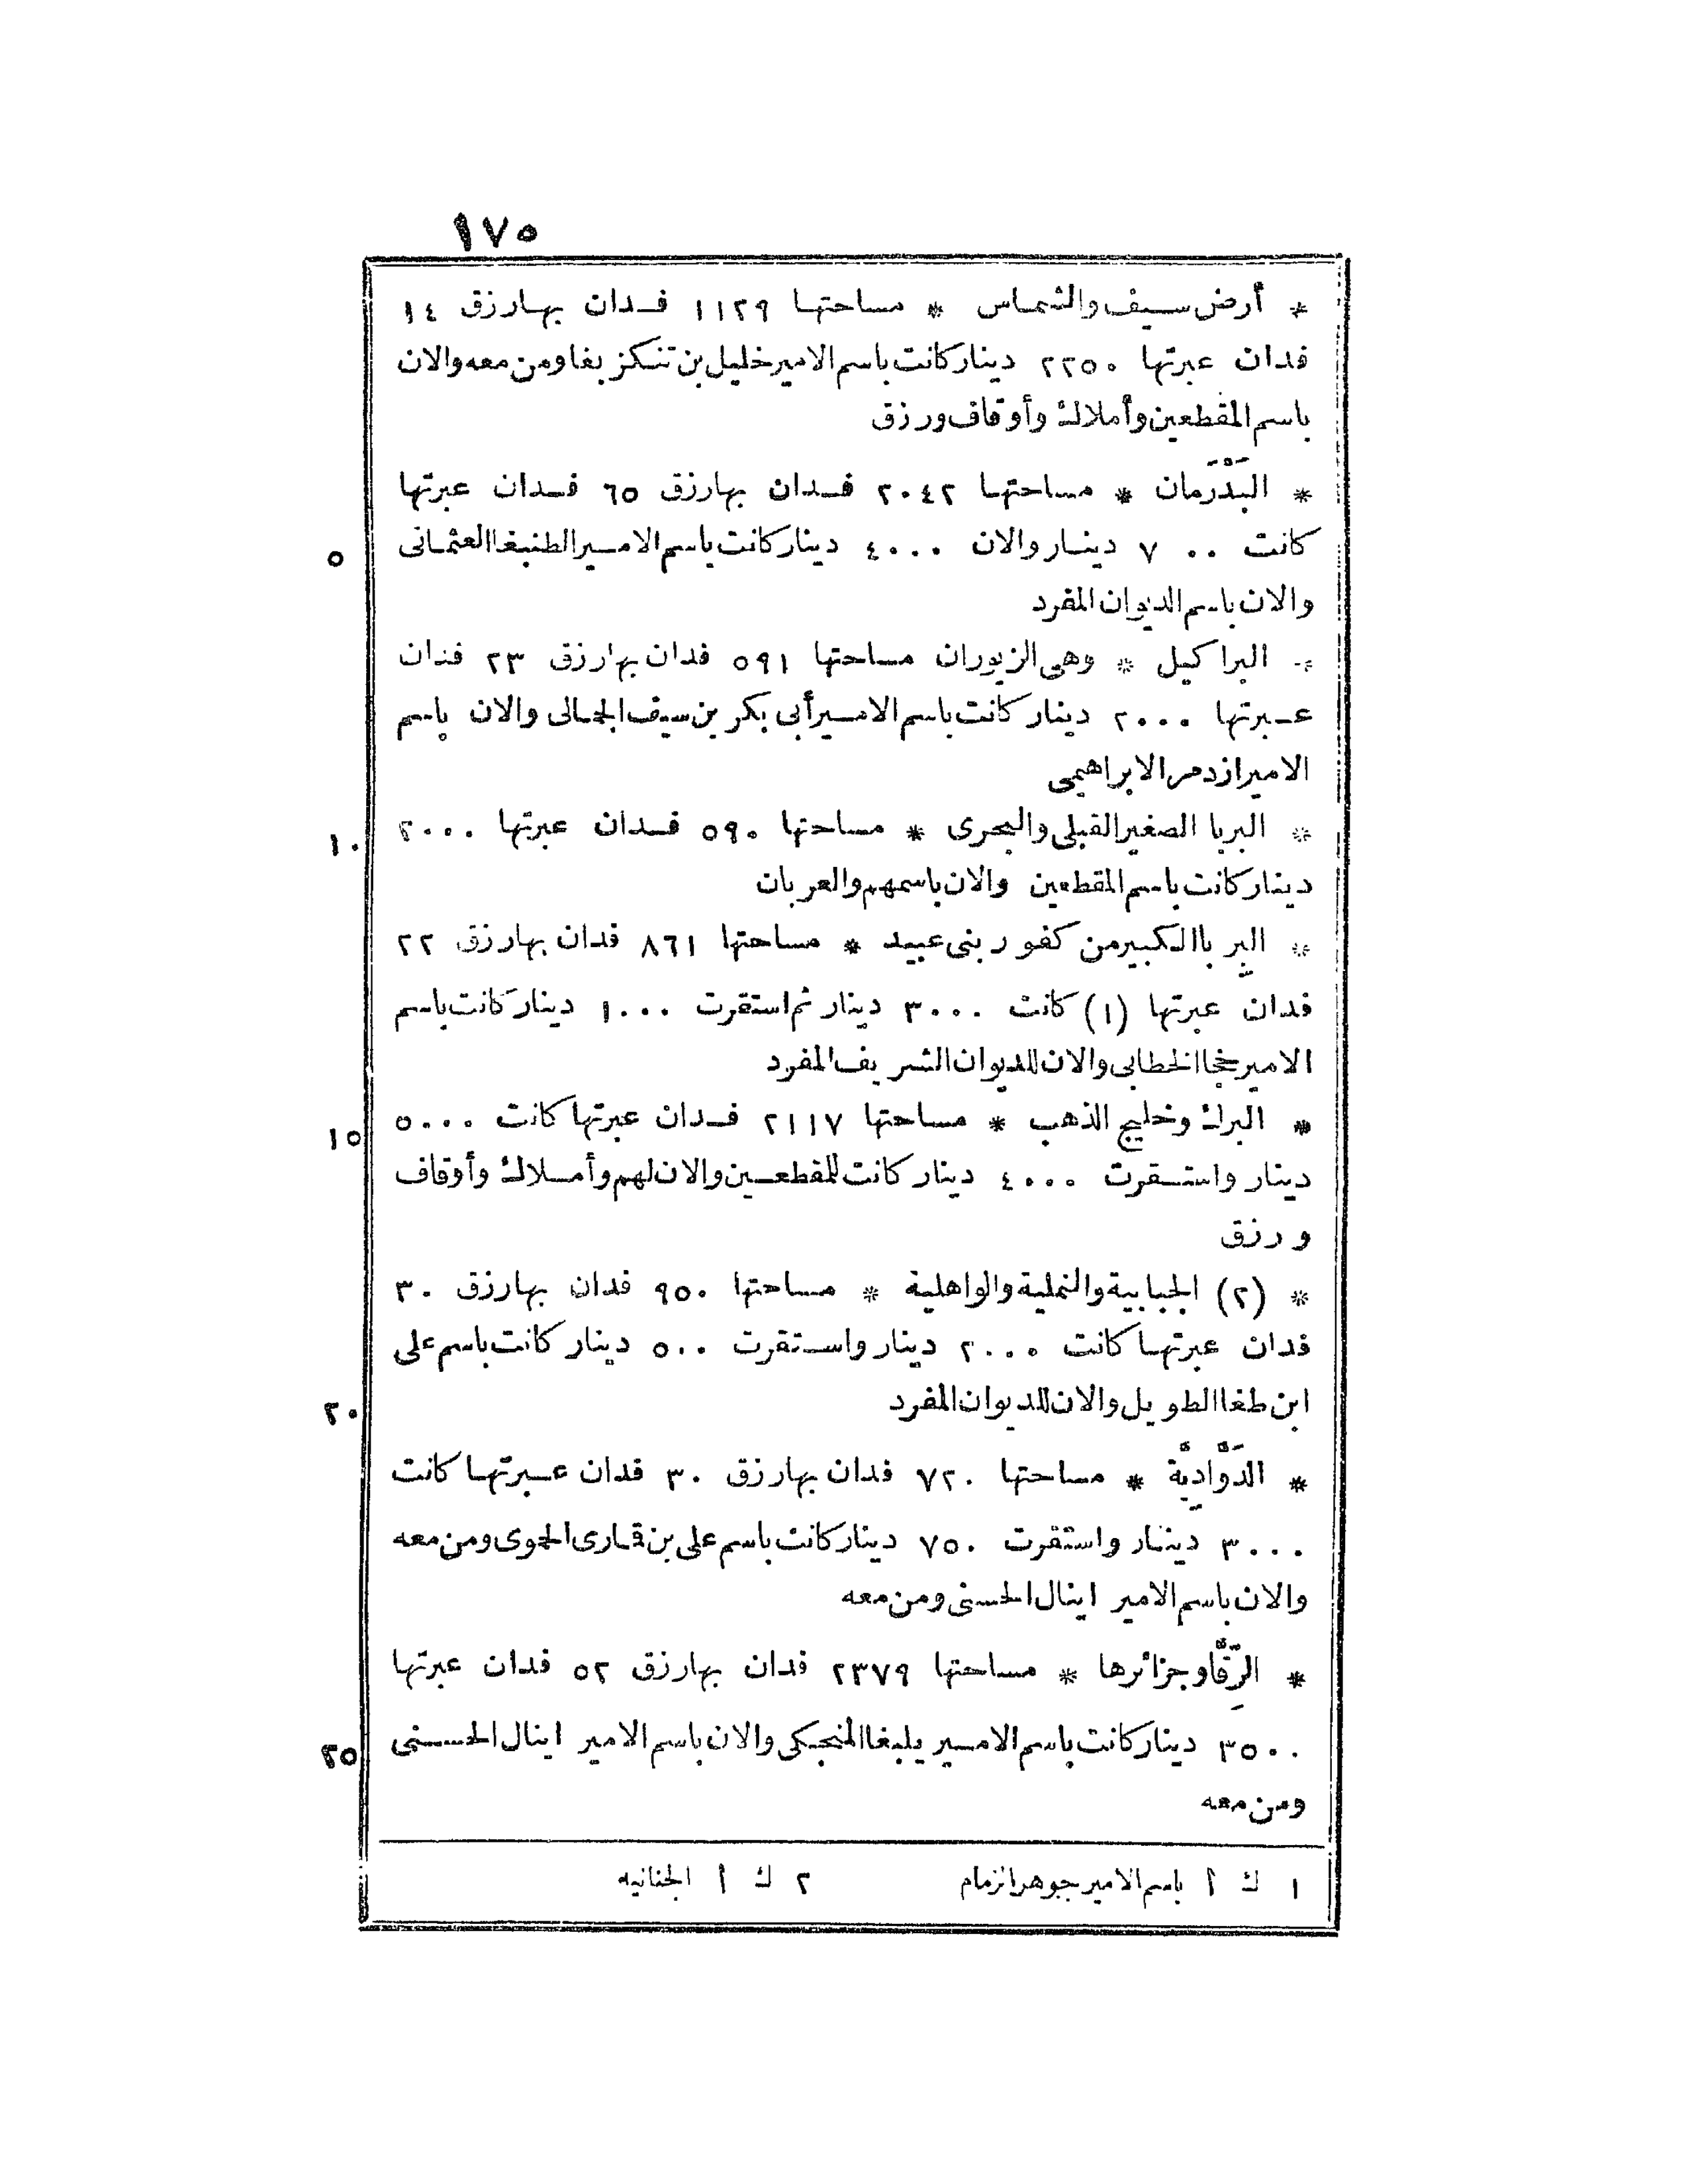 ١٧٥
* أرض سيف والشماس * مساحتها ١١٢٩ فدان بها رزق ١٤
فدان عبرتها ٢٢٥٠ دينار كانت باسم الامير خليل بن تنكز بغا ومن معه والان
باسم المقطعين وأملاك وأوقاف ورزق
* البَدْرَمان * مساحتها ٢٠٤٢ فدان بها رزق ٦٥ فدان عبرتها
كانت ٧٠٠ دينار والان ٤٠٠٠ دينار كانت باسم الامير الطنبغا العثمانى
٥
والان باسم الديوان المفرد
* البراكيل * وهى الزيوران مساحتها ٥٩١ فدان بها رزق ٢٣ فدان
عبرتها ٢٠٠٠ دينار كانت باسم الامير أبى بكر بن سيف الجمالى والان باسم
الامير ازدمر الابراهيمى
* البربا الصغير القبلى والبحرى * مساحتها ٥٩٠ فدان عبرتها ٢٠٠٠
١٠
دينار كانت باسم المقطعين والان باسمهم والعربان
* البربا الكبير من كفور بنى عبيد * مساحتها ٨٦١ فدان بها رزق ٢٢
فدان عبرتها (١) كانت ٣٠٠٠ دينار ثم استقرت ١٠٠٠ دينار كانت باسم
الامير خجا الخطابى والان للديوان الشريف المفرد
* البرك وخليج الذهب * مساحتها ٢١١٧ فدان عبرتها كانت ٥٠٠٠
١٥
دينار واستقرت ٤٠٠٠ دينار كانت للمقطعين والان لهم وأملاك وأوقاف
ورزق
* (٢) الجبابية والنملية والواهلية * مساحتها ٩٥٠ فدان بها رزق ٣٠
فدان عبرتها كانت ٢٠٠٠ دينار واستقرت ٥٠٠ دينار كانت باسم على
ابن طغا الطويل والان للديوان المفرد
٢٠
* الدَوَّادِيَّة * مساحتها ٧٢٠ فدان بها رزق ٣٠ فدان عبرتها كانت
٣٠٠٠ دينار واستقرت ٧٥٠ دينار كانت باسم على بن قمارى الحموى ومن معه
والان باسم الامير اينال الحسنى ومن معه
* الرِّقَّا وجزائرها * مساحتها ٢٣٧٩ فدان بها رزق ٥٢ فدان عبرتها
٣٥٠٠ دينار كانت باسم الامير يلبغا المنجكى والان باسم الامير اينال الحسنى
٢٥
ومن معه
١ ك أ باسم الامير جوهر الزمام ٢ ك أ الجنانيه